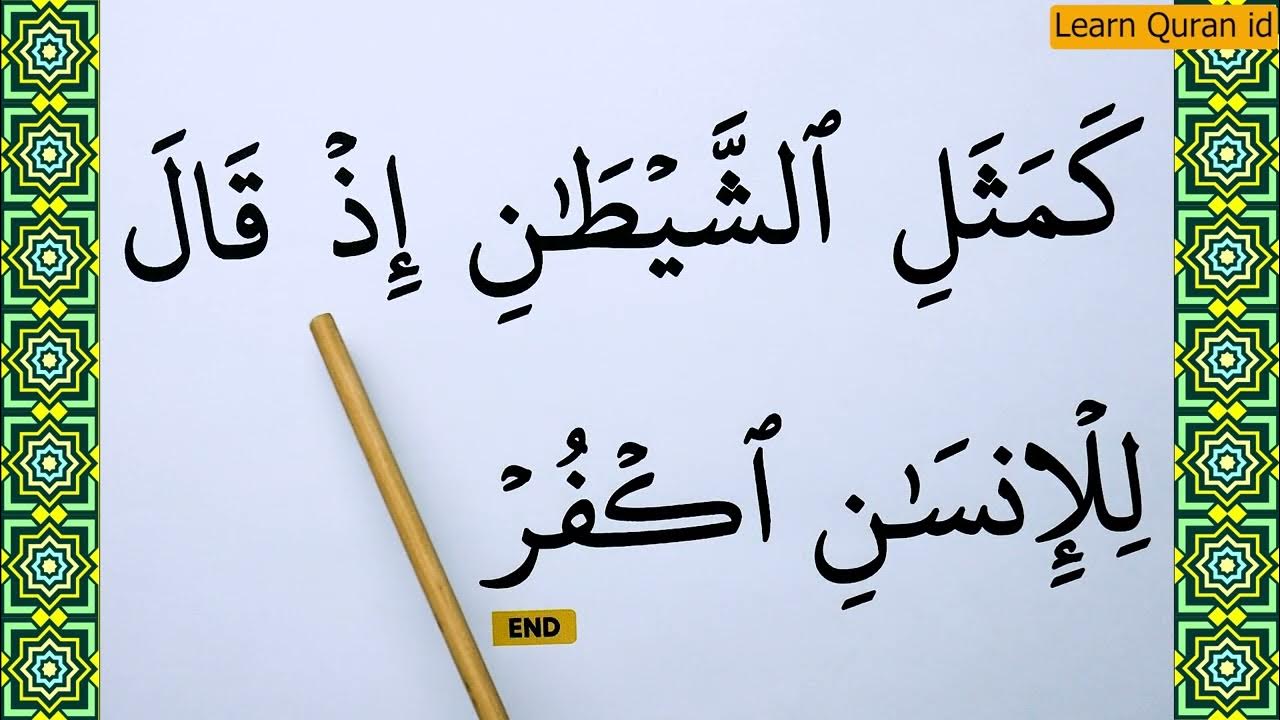 Learn Quran id
كَمَثَلِ ٱلشَّيۡطَٰنِ إِذۡ قَالَ
لِلۡإِنسَٰنِ ٱكۡفُرۡ
END